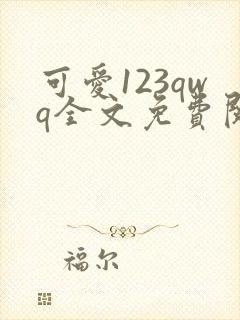 可愛123qw
q全文免費閱
福尔